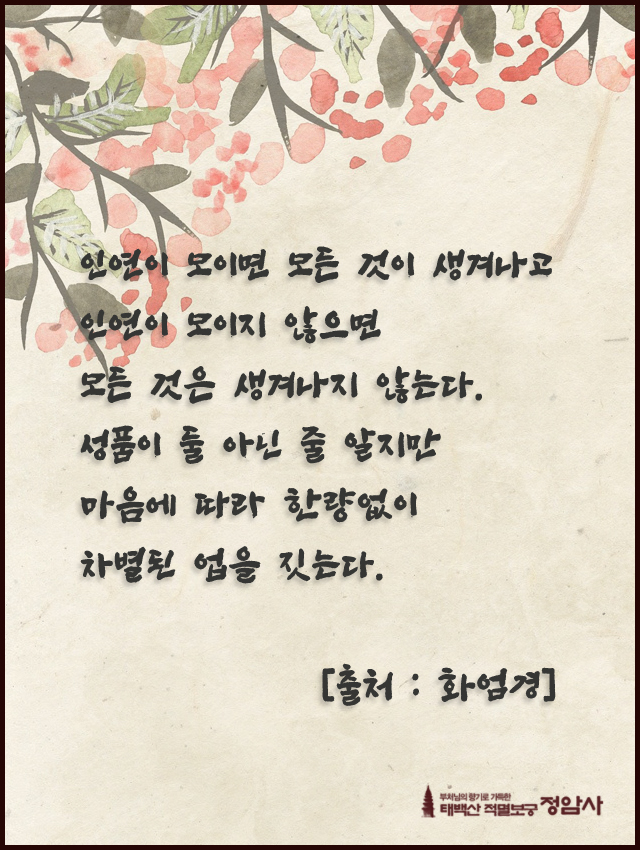 인연이 모이면 모든 것이 생겨나고
인연이 모이지 않으면
모든 것은 생겨나지 않는다.
성품이 둘 아닌 줄 알지만
마음에 따라 한량없이
차별된 업을 짓는다.
[출처 : 화엄경]
부처님의 향기로 가득한
태백산 적멸보궁 정암사